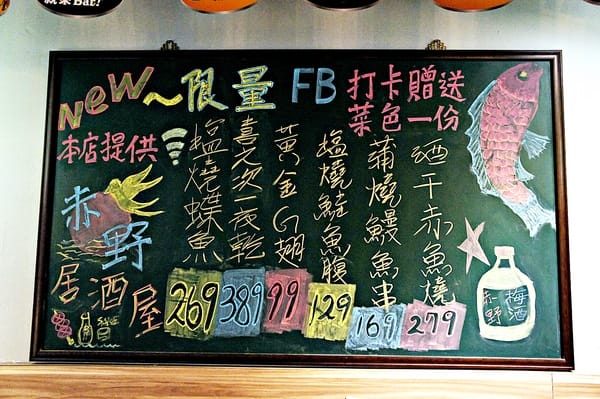 NeW~限量
FB
打卡贈送
菜色一份
本店提供
赤野
居酒屋
酒干赤魚燒
279
蒲燒鰻魚串
169
塩燒鮭魚腹
129
黃金G翅
99
喜之次一夜乾
389
塩燒蝶魚
269
梅酒
赤野